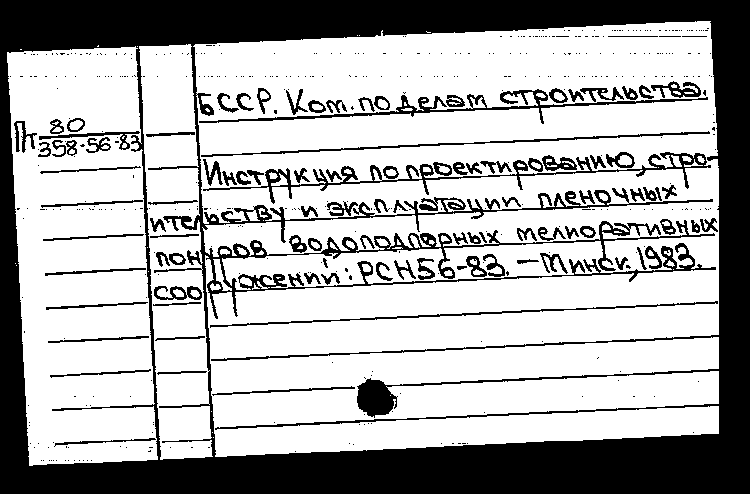 БССР. Ком. по делам строительства.
Пт 80
358-56-83
Инструкция по проектированию, стро-
ительству и эксплуатации пленочных
понуров водоподпорных мелиоративных
сооружений: РСН 56-83. — Минск, 1983.